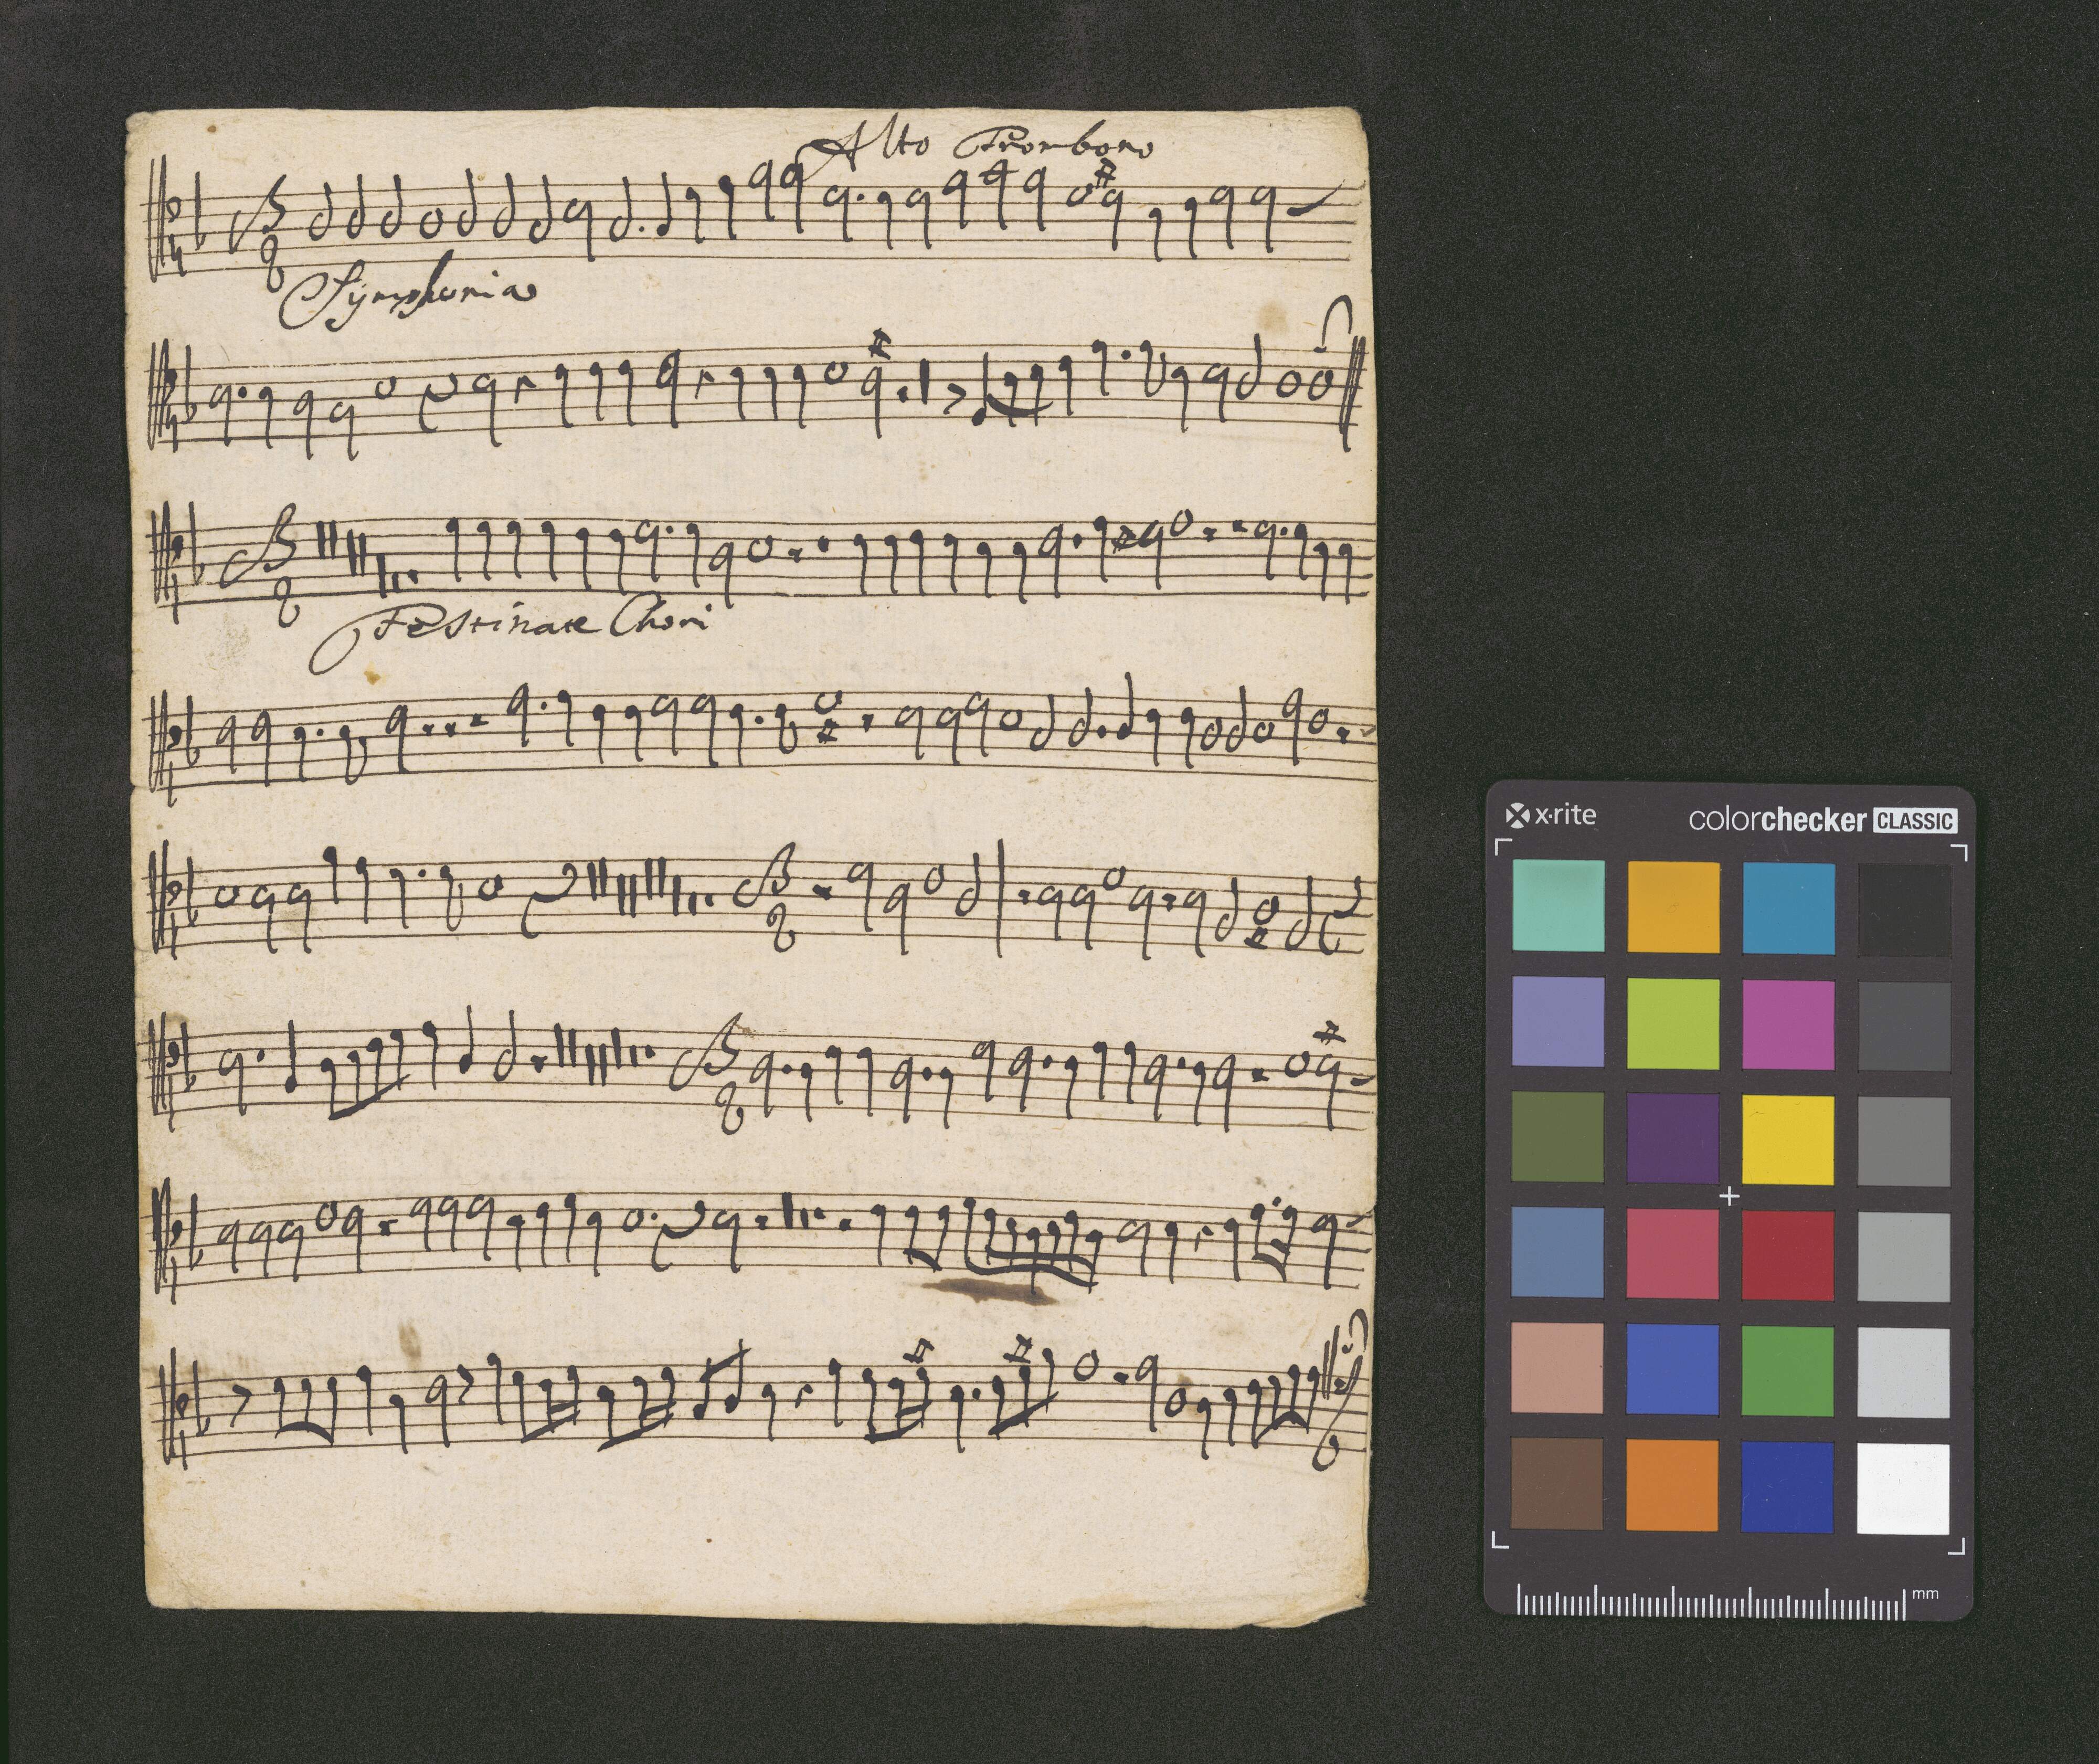 Alto Trombono
Symphonia
Festinate Chori
x·rite
colorchecker CLASSIC
mm